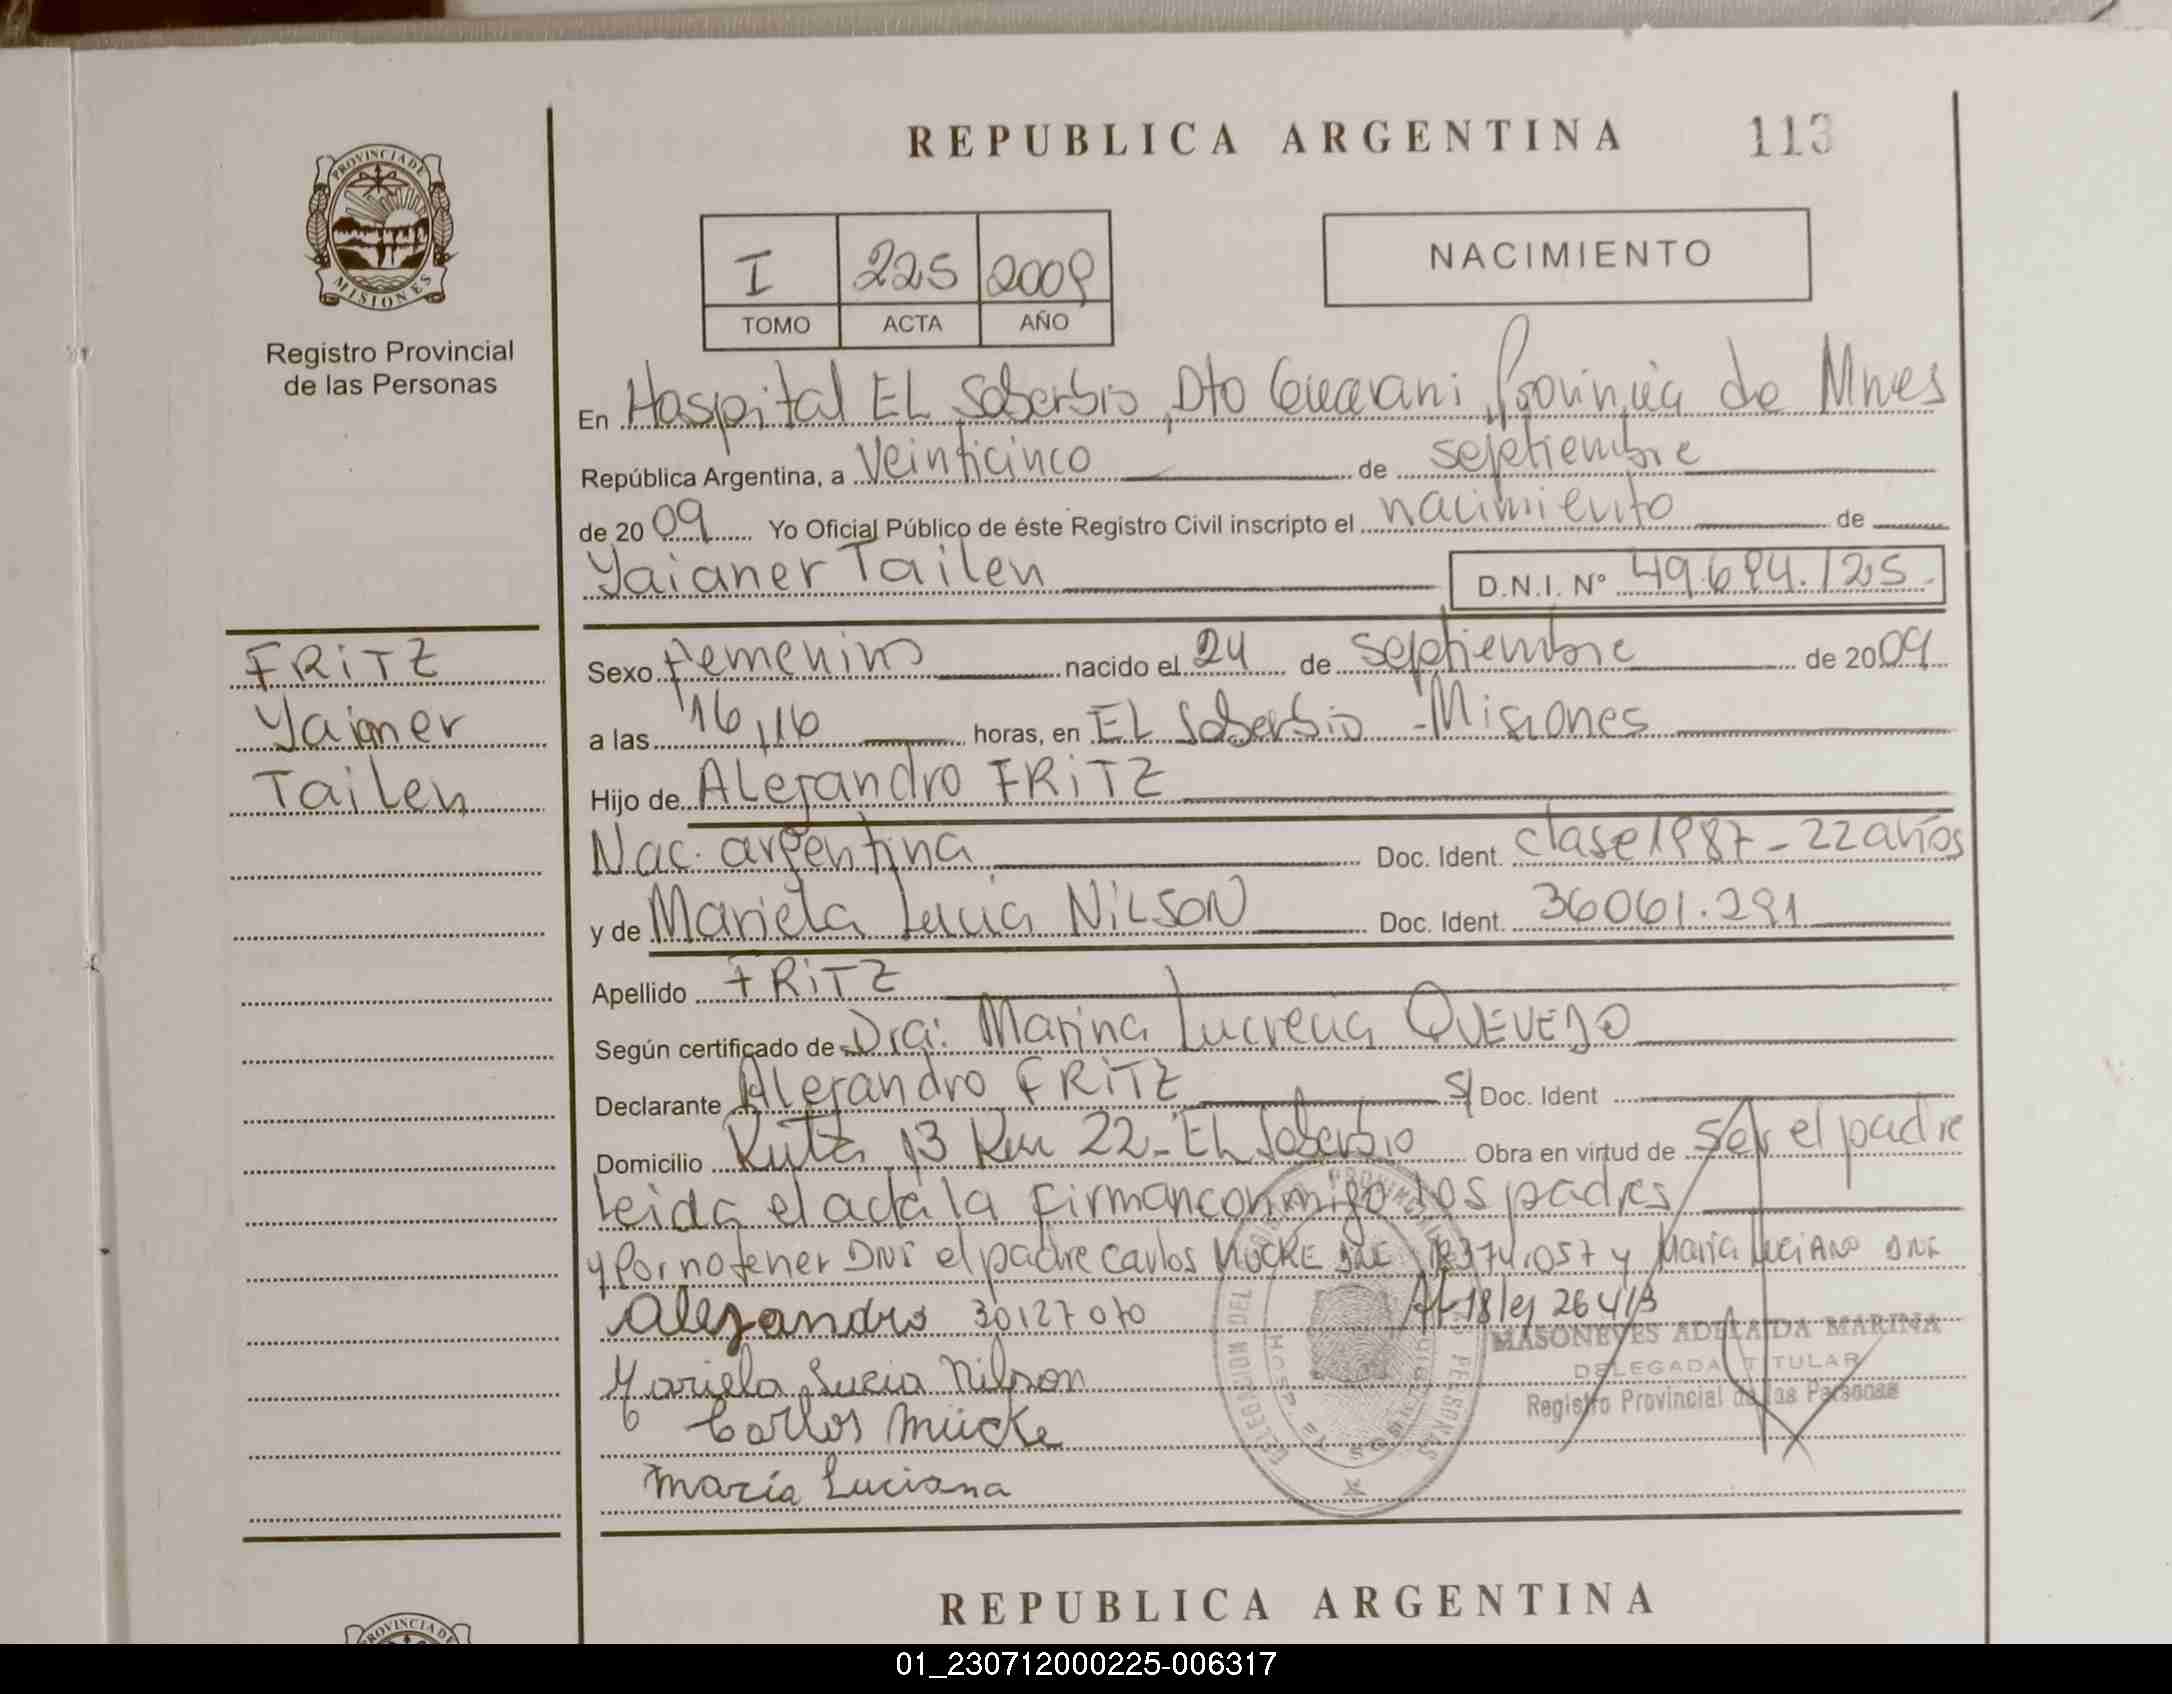 REPUBLICA ARGENTINA 113
PROVINCIA DE MISIONES
Registro Provincial
de las Personas
I 225 2009
TOMO ACTA AÑO
NACIMIENTO
En Hospital EL Soberbio, Dto Guarani, Provincia de Mnes
República Argentina, a Veinticinco de septiembre
de 2009 Yo Oficial Público de éste Registro Civil inscripto el nacimiento de
Yaianer Tailen D.N.I. Nº 49.694.125.
FRITZ
Yaianer
Tailen
Sexo Femenino nacido el 24 de Septiembre de 2009
a las 16,16 horas, en EL Soberbio - Misiones
Hijo de ALejandro FRITZ
Nac. argentina Doc. Ident. clase 1987 - 22 años
y de Mariela Lucia NILSON Doc. Ident. 36061.291
Apellido FRITZ
Según certificado de Dra: Marina Lucrecia QUEVEDO
Declarante ALejandro FRITZ S/ Doc. Ident
Domicilio Ruta 13 Km 22 - EL Soberbio Obra en virtud de Ser el padre
Leida el acta la firman conmigo los padres
y Por no tener DNI el padre Carlos MÜCKE DNI 12374.057 y Maria LUCIANO DNI
Alejandro 30127070 Art 18 ley 26413
MASONEVES ADELAIDA MARINA
DELEGADA TITULAR
Registro Provincial de las Personas
Mariela Lucia Nilson
Carlos Mücke
María Luciana
REPUBLICA ARGENTINA
PROVINCIA DE
01_230712000225-006317